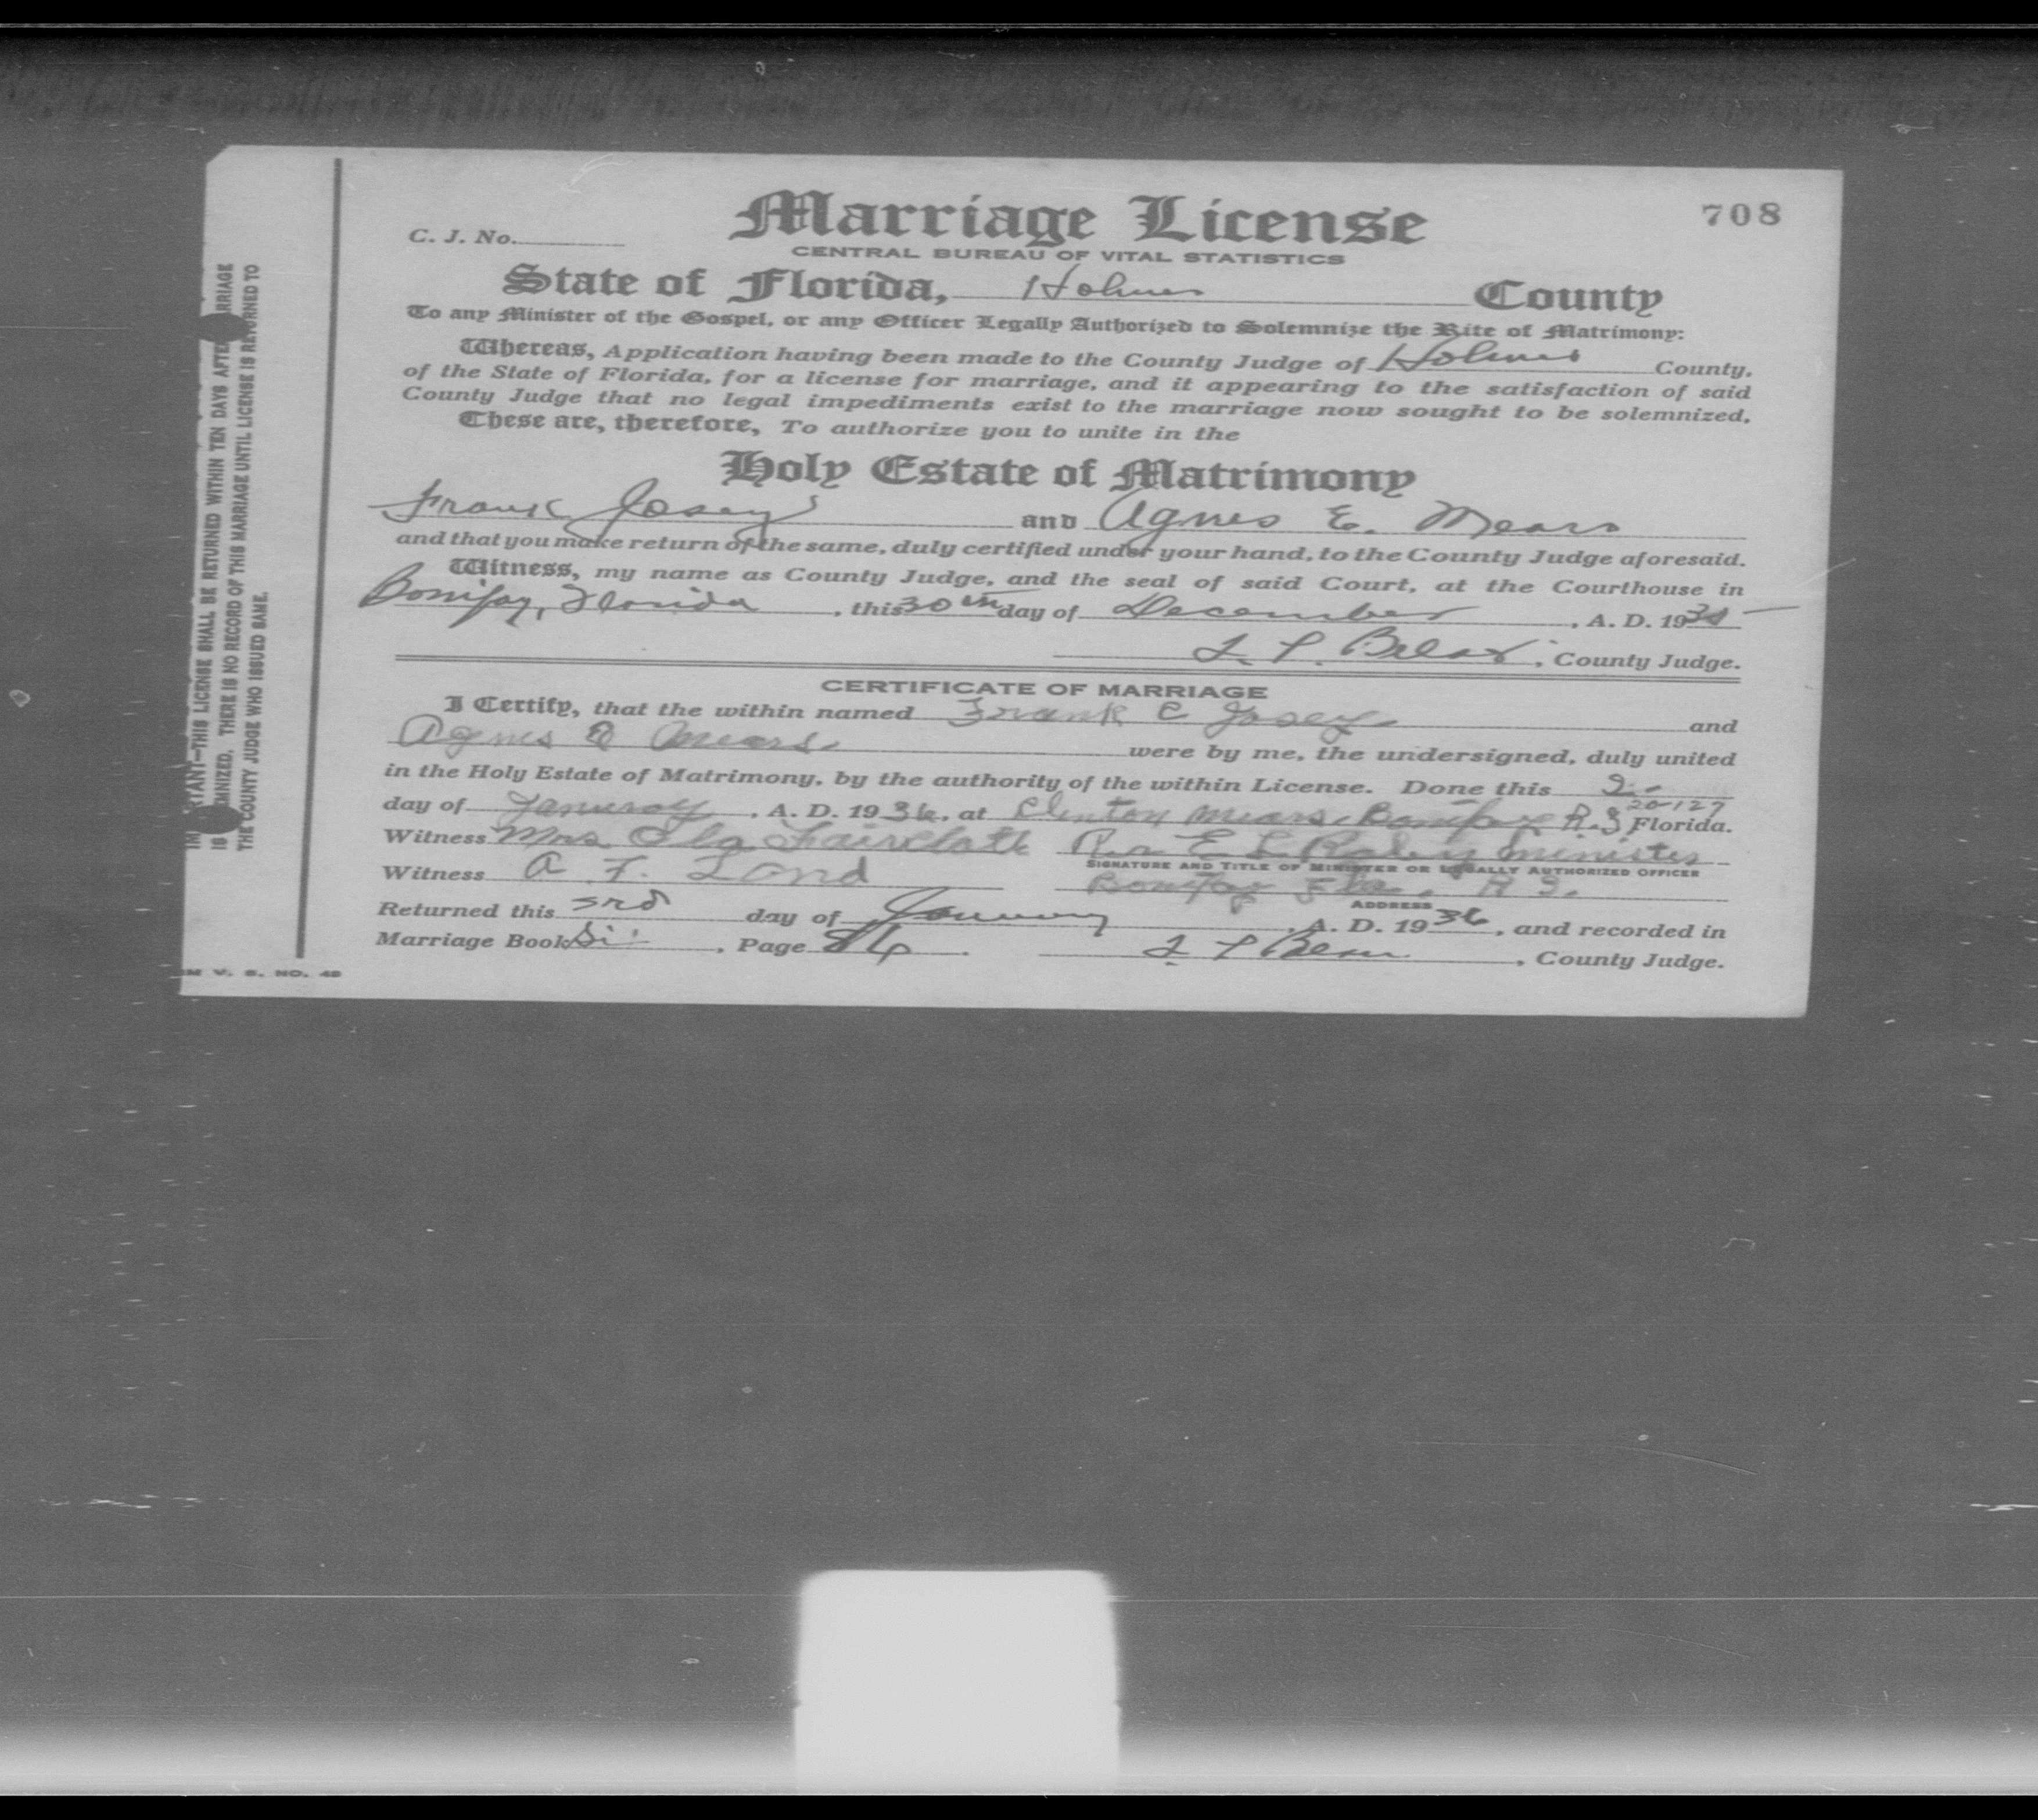 708
Marriage License
C. J. No.
CENTRAL BUREAU OF VITAL STATISTICS
State of Florida, Holmes County
To any Minister of the Gospel, or any Officer Legally Authorized to Solemnize the Rite of Matrimony:
Whereas, Application having been made to the County Judge of Holmes County,
of the State of Florida, for a license for marriage, and it appearing to the satisfaction of said
County Judge that no legal impediments exist to the marriage now sought to be solemnized,
These are, therefore, To authorize you to unite in the
Holy Estate of Matrimony
Frank Josey and Agnes E. Mears
and that you make return of the same, duly certified under your hand, to the County Judge aforesaid.
Witness, my name as County Judge, and the seal of said Court, at the Courthouse in
Bonifay, Florida, this 30th day of December, A. D. 19
County Judge.
CERTIFICATE OF MARRIAGE
I Certify, that the within named Frank C Josey and
Agnes E Mears were by me, the undersigned, duly united
in the Holy Estate of Matrimony, by the authority of the within License. Done this 2
20-127
day of , A. D. 1936, at Clinton Mears Bonifay R.3, Florida.
Witness Mrs Ola Faircloth E L minister
SIGNATURE AND TITLE OF MINISTER OR LEGALLY AUTHORIZED OFFICER
Witness A. F. Land Bonifay Fla. R 3.
ADDRESS
Returned this 3rd day of January A. D. 1936, and recorded in
Marriage Book , Page 86. , County Judge.
M V. S. NO. 40
IM RTANT—THIS LICENSE SHALL BE RETURNED WITHIN TEN DAYS AFTE RRIAGE
IS EMNIZED. THERE IS NO RECORD OF THIS MARRIAGE UNTIL LICENSE IS RETURNED TO
THE COUNTY JUDGE WHO ISSUED SAME.